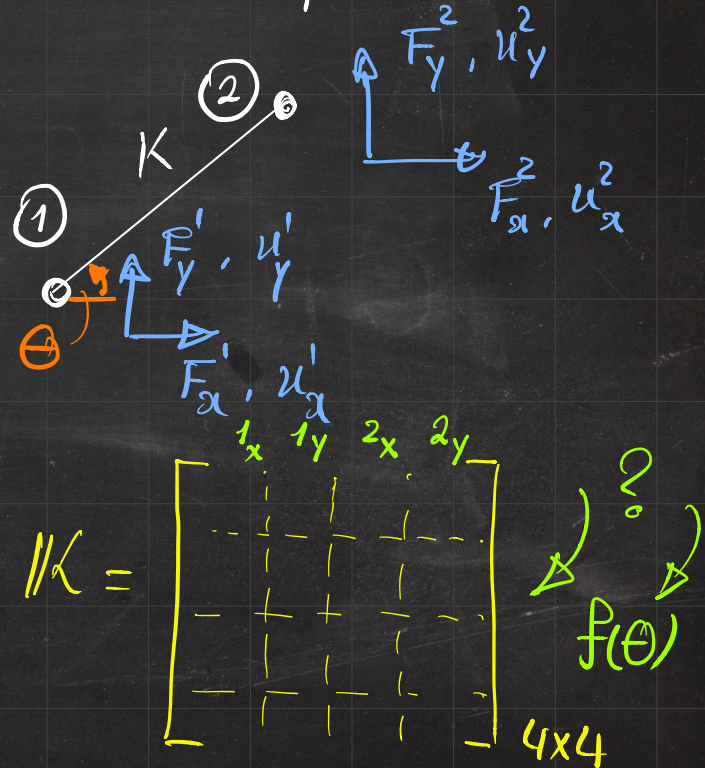 F_y^2, u_y^2
②
K
F_x^2, u_x^2
①
F_y^1, u_y^1
θ
F_x^1, u_x^1
1x 1y 2x 2y
?
𝕂 =
f(θ)
4x4